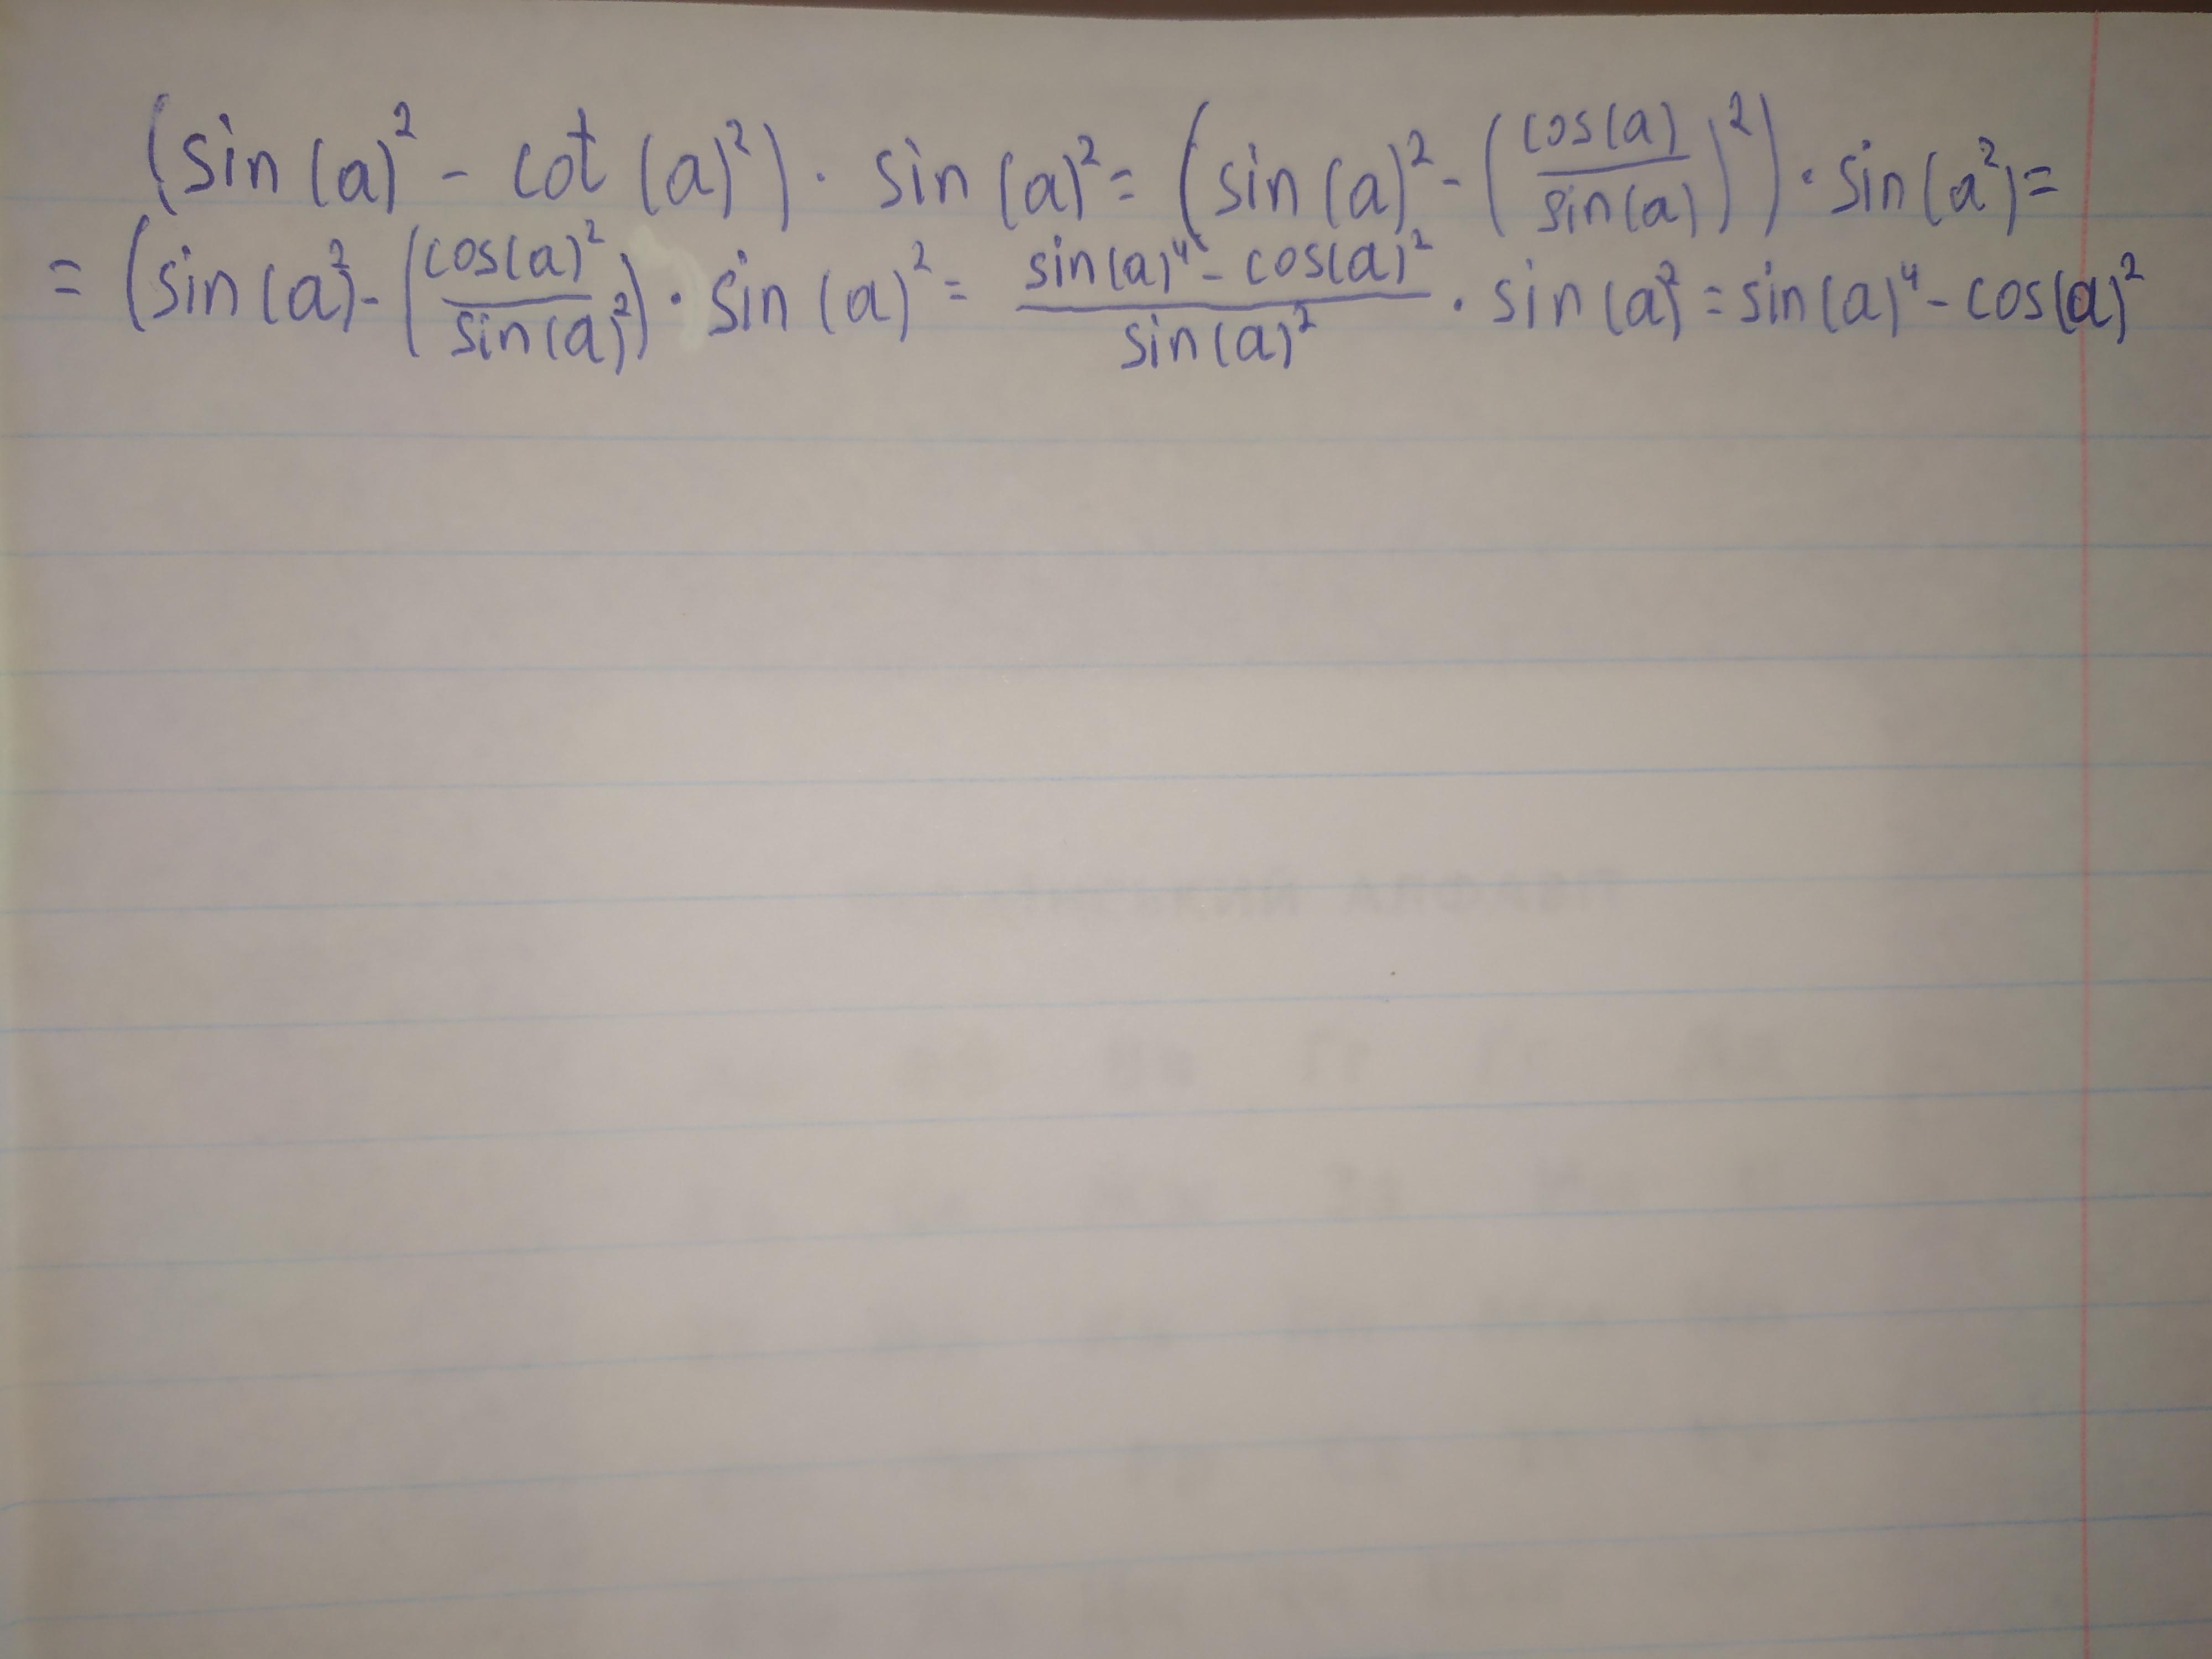 (sin(a)² - cot(a)²) · sin(a)² = (sin(a)² - (cos(a)/sin(a))²) · sin(a²) =
= (sin(a)² - (cos(a)²/sin(a)²) · sin(a)² = sin(a)⁴ - cos(a)²/sin(a)² · sin(a)² = sin(a)⁴ - cos(a)²